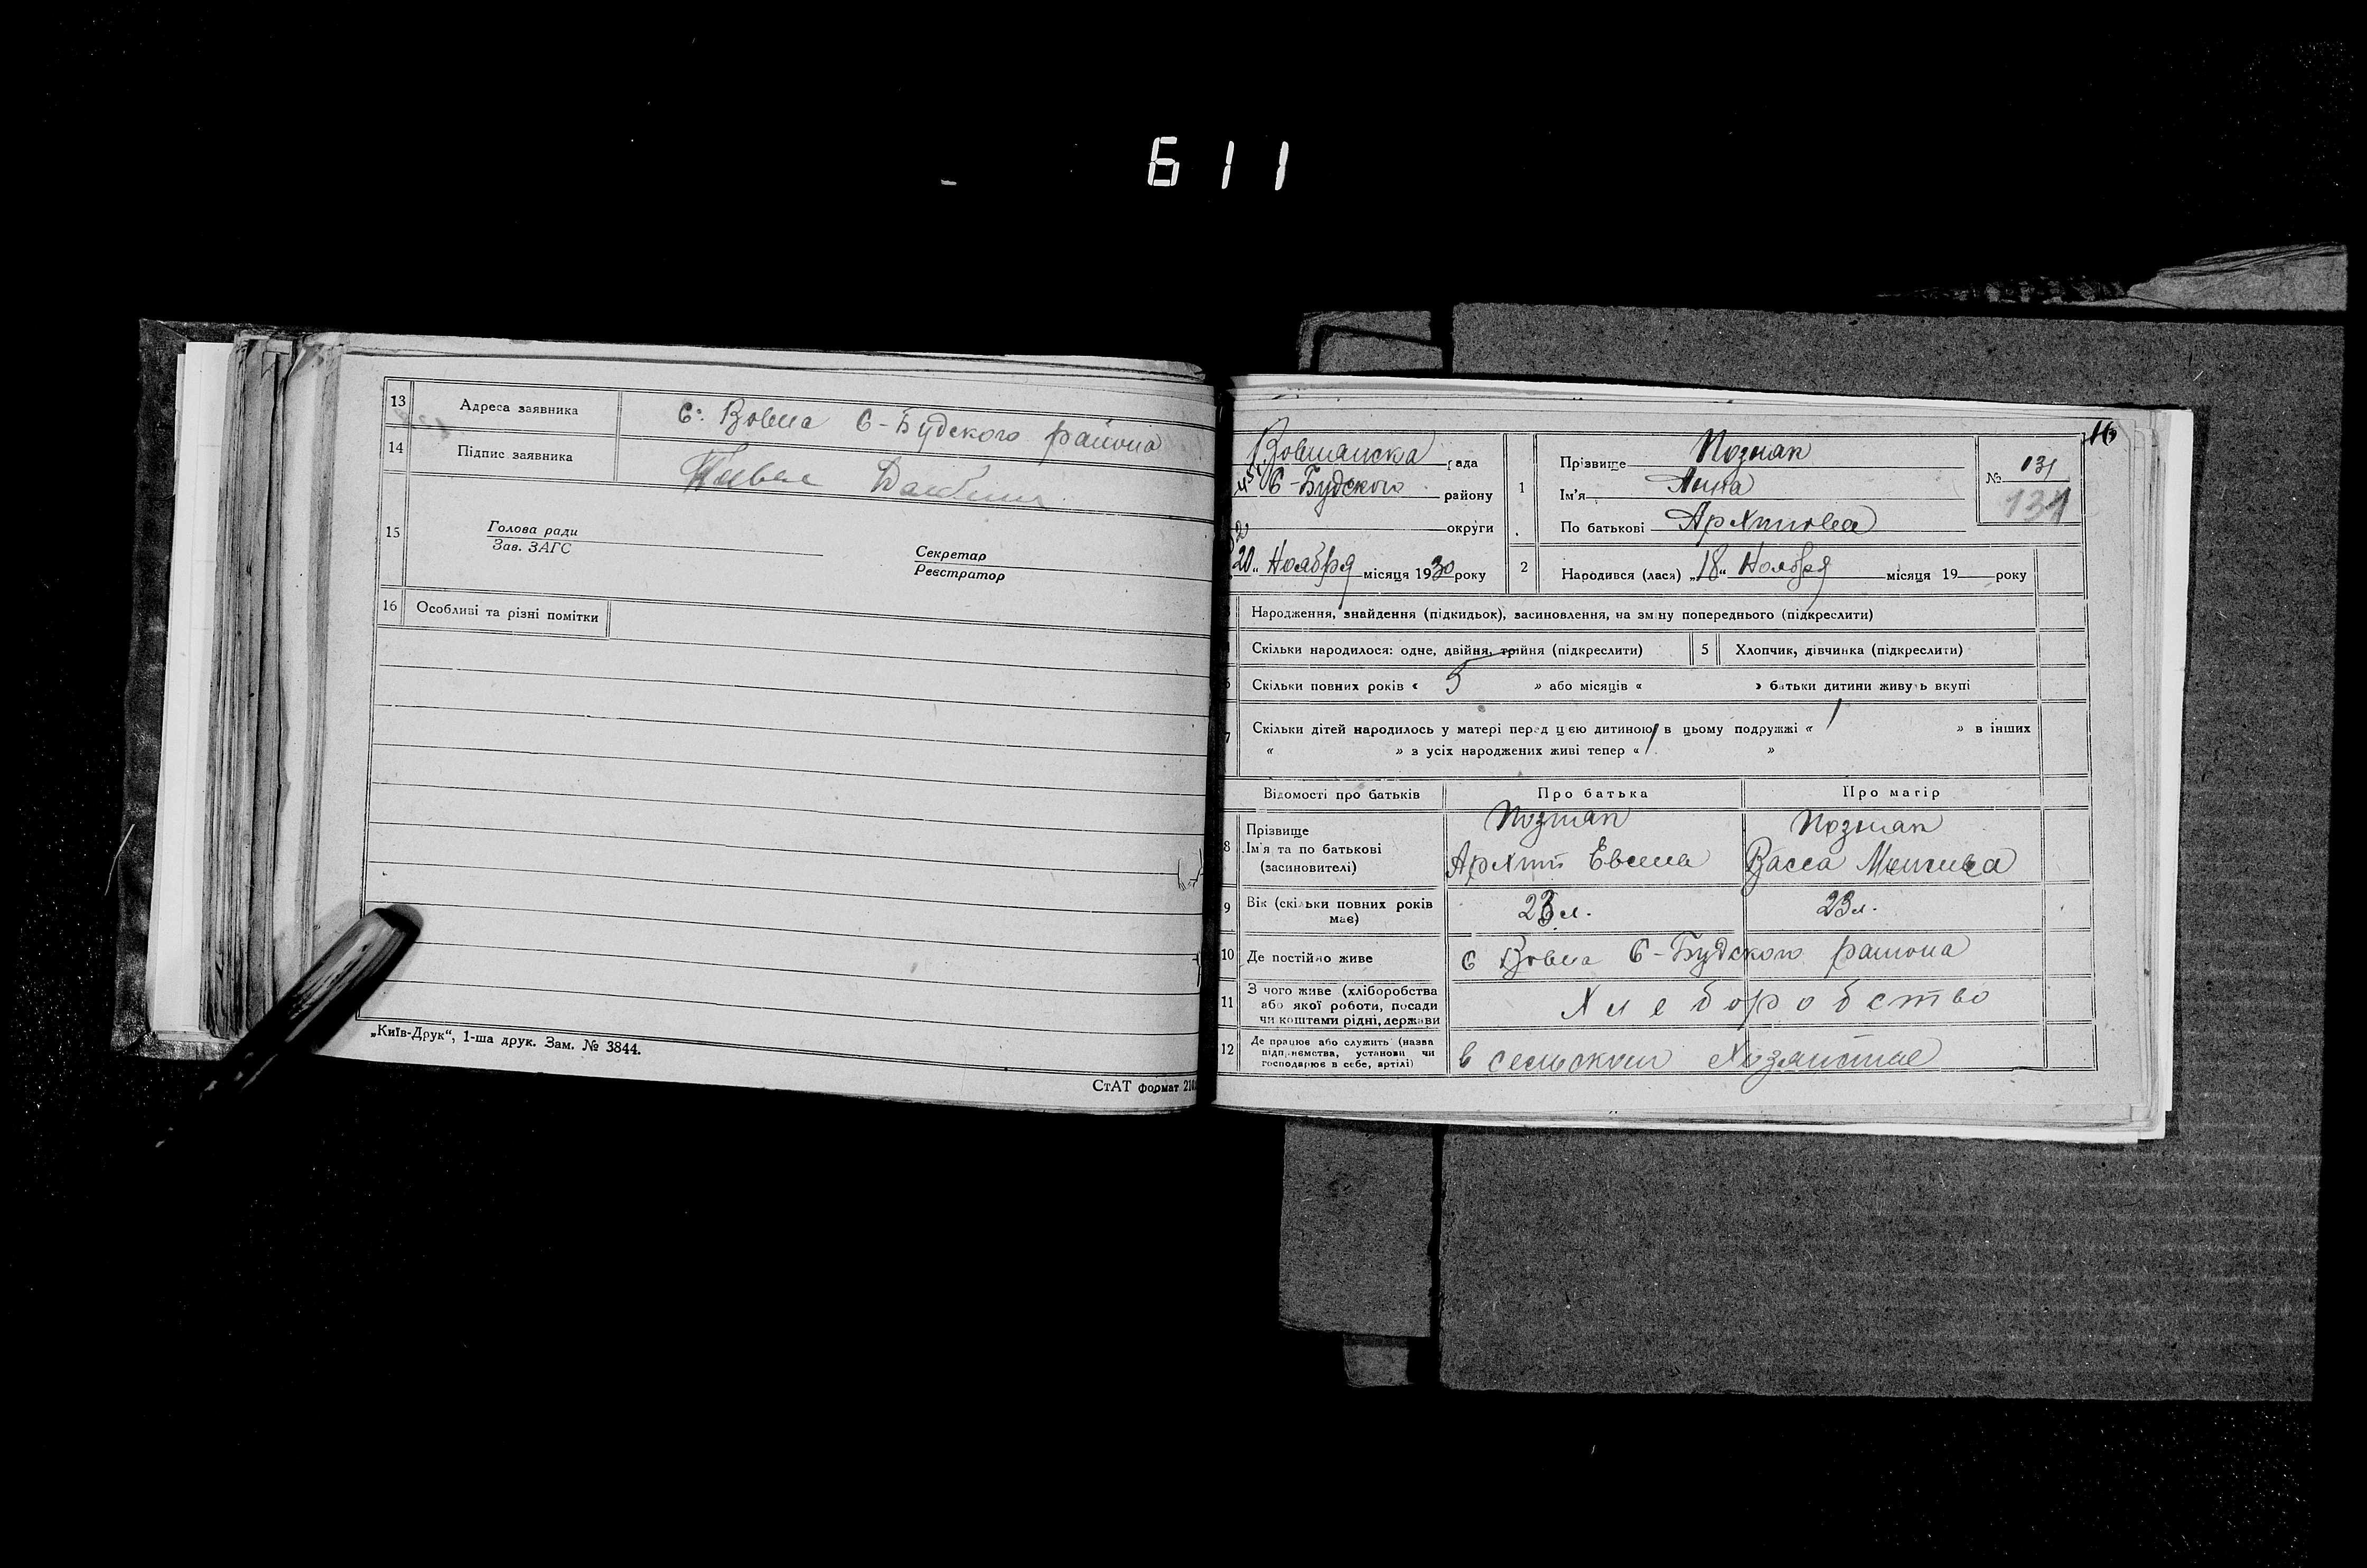 611
13 Адреса заявника С. Вовна С-Будского района
14 Підпис заявника
15 Голова ради
Зав. ЗАГС
Секретар
Реєстратор
16 Особливі та різні помітки
„Київ-Друк“, 1-ша друк. Зам. № 3844.
СтАТ формат 210
16
Вовнанска рада
С-Будского району
округи
20 „ Ноября місяця 1930 року
1 Прізвище Позняк
Ім'я Анна
По батькові Архипова
№ 131
131
2 Народився (лася) „18“ Ноября місяця 19 року
Народження, знайдення (підкидьок), засиновлення, на зміну попереднього (підкреслити)
Скільки народилося: одне, двійня, трійня (підкреслити) 5 Хлопчик, дівчинка (підкреслити)
6 Скільки повних років « 5 » або місяців « » батьки дитини живуть вкупі
7 Скільки дітей народилось у матері перед цією дитиною в цьому подружжі « 1 » в інших
« » з усіх народжених живі тепер « 1 »
Відомості про батьків Про батька Про матір
8 Прізвище Позняк Позняк
Ім'я та по батькові Архип Васса
(засиновителі)
9 Вік (скільки повних років має) 23 л. 23 л.
10 Де постійно живе С Вовна С-Будского района
11 З чого живе (хліборобства
або якої роботи, посади
чи коштами рідні, держави Хлеборобство
12 Де працює або служить (назва
підприємства, установи чи
господарює в себе, артілі) в сельском хозяистве